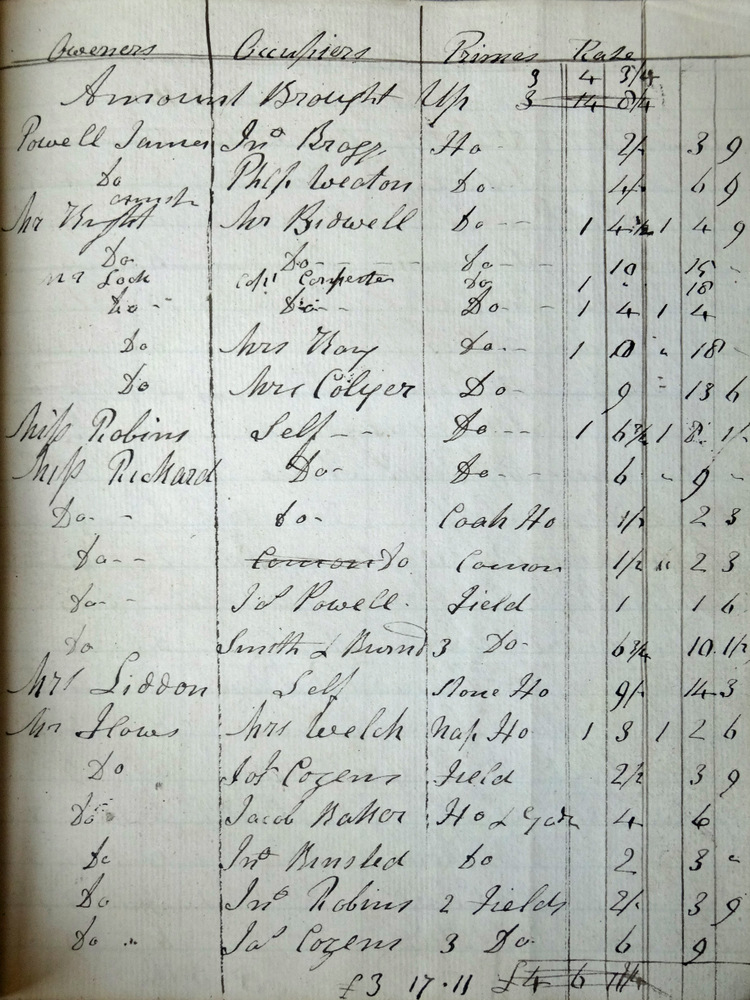 Oweners Occupiers Primes Rate
3 4 3/4
Amount Brought Up 3 14 8/4
Powell James Jno Bragg Ho 2/- 3 9
Do Philp Weaton Do 4/- 6 9
Mr Mr Bidwell Do 1 4½ 1 4 9
Do Do Do 10 15 -
Mr Lock Capt Carpenter Do 1 " 18
Do Do Do 1 4 1 4
Do Mrs Kay Do 1 0 " 18 -
Do Mrs Colyer Do 9 - 13 6
Miss Robins Self Do 1 6¾ 1 8 1½
Miss Richard Do Do 6 " 9 -
Do do Coah Ho 1½ 2 3
Do Comon Do Comon 1½ " 2 3
Do Jas Powell Field 1 1 6
Do Smith & Burnd 3 Do 6¾ 10 1½
Mrs Liddon Self Stone Ho 9½ 14 3
Mr Hows Mrs Welch Nap Ho 1 3 1 2 6
Do Jos Cozens Field 2½ 3 9
Do Jacob Baker Ho & Gdn 4 6
Do Jno Binsted Do 2 3 "
Do Jno Robins 2 Fields 2/- 3 9
Do " Jas Cozens 3 Do 6 9
£3 17 · 11 £4 6